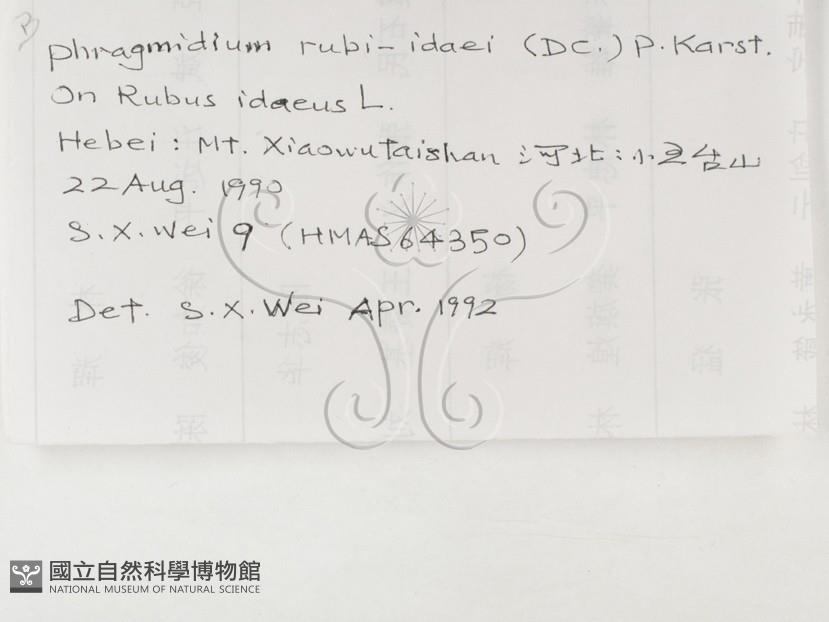 Phragmidium rubi-idaei (DC.) P. Karst.
On Rubus idaeus L.
Hebei : Mt. Xiaowutaishan 河北:小五台山
22 Aug. 1990
S. X. Wei 9 (HMAS 64350)
Det. S. X. Wei Apr. 1992
國立自然科學博物館
NATIONAL MUSEUM OF NATURAL SCIENCE